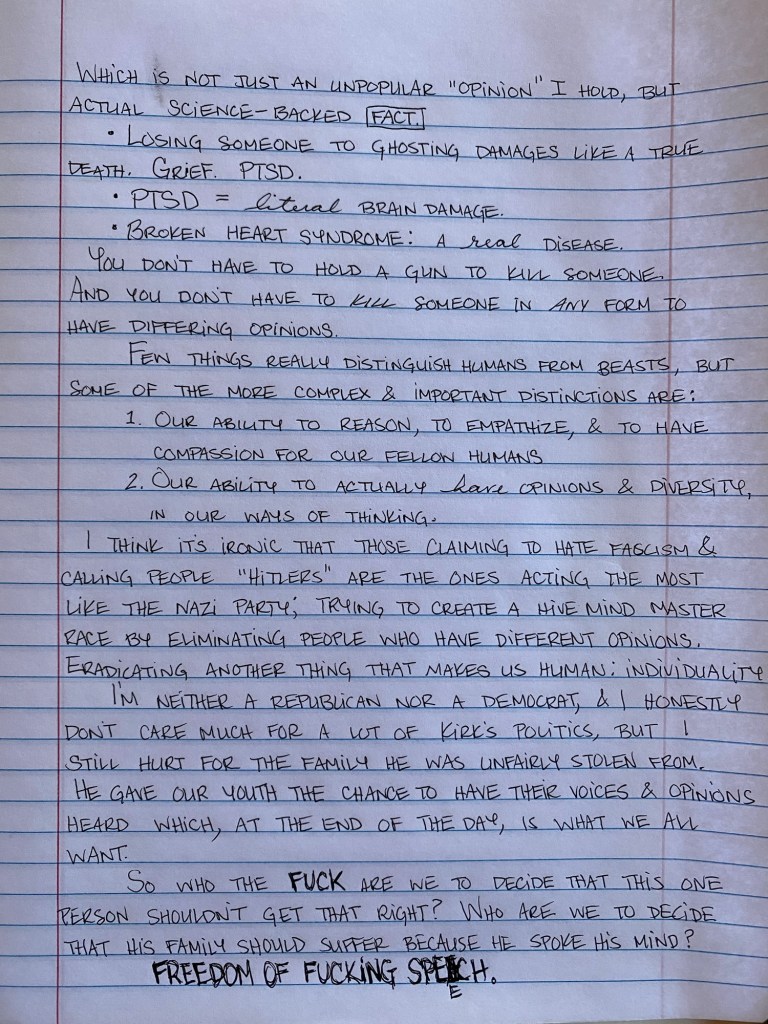 WHICH IS NOT JUST AN UNPOPULAR "OPINION" I HOLD, BUT
ACTUAL SCIENCE-BACKED FACT.
• LOSING SOMEONE TO GHOSTING DAMAGES LIKE A TRUE
DEATH. GRIEF. PTSD.
• PTSD = literal BRAIN DAMAGE.
• BROKEN HEART SYNDROME: A real DISEASE.
YOU DON'T HAVE TO HOLD A GUN TO KILL SOMEONE.
AND YOU DON'T HAVE TO KILL SOMEONE IN ANY FORM TO
HAVE DIFFERING OPINIONS.
FEW THINGS REALLY DISTINGUISH HUMANS FROM BEASTS, BUT
SOME OF THE MORE COMPLEX & IMPORTANT DISTINCTIONS ARE:
1. OUR ABILITY TO REASON, TO EMPATHIZE, & TO HAVE
COMPASSION FOR OUR FELLOW HUMANS
2. OUR ABILITY TO ACTUALLY have OPINIONS & DIVERSITY,
IN OUR WAYS OF THINKING.
I THINK IT'S IRONIC THAT THOSE CLAIMING TO HATE FASCISM &
CALLING PEOPLE "HITLERS" ARE THE ONES ACTING THE MOST
LIKE THE NAZI PARTY; TRYING TO CREATE A HIVE MIND MASTER
RACE BY ELIMINATING PEOPLE WHO HAVE DIFFERENT OPINIONS.
ERADICATING ANOTHER THING THAT MAKES US HUMAN: INDIVIDUALITY
I'M NEITHER A REPUBLICAN NOR A DEMOCRAT, & I HONESTLY
DON'T CARE MUCH FOR A LOT OF KIRK'S POLITICS, BUT I
STILL HURT FOR THE FAMILY HE WAS UNFAIRLY STOLEN FROM.
HE GAVE OUR YOUTH THE CHANCE TO HAVE THEIR VOICES & OPINIONS
HEARD WHICH, AT THE END OF THE DAY, IS WHAT WE ALL
WANT.
SO WHO THE FUCK ARE WE TO DECIDE THAT THIS ONE
PERSON SHOULDN'T GET THAT RIGHT? WHO ARE WE TO DECIDE
THAT HIS FAMILY SHOULD SUFFER BECAUSE HE SPOKE HIS MIND?
FREEDOM OF FUCKING SPEECH.